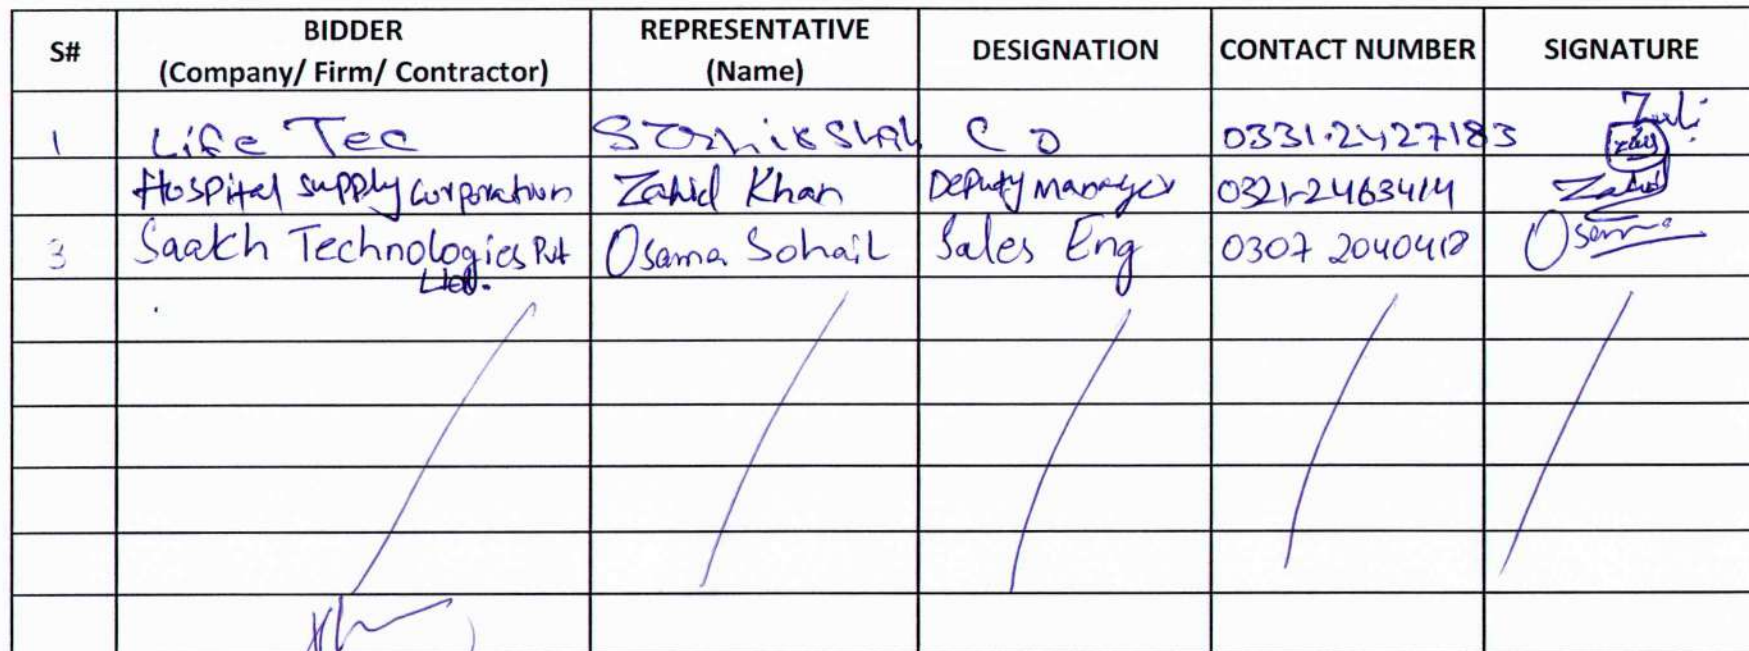 S# BIDDER (Company/ Firm/ Contractor) REPRESENTATIVE (Name) DESIGNATION CONTACT NUMBER SIGNATURE
1 Life Tec Shah C O 0331-2427183
Hospital supply corporation Zahid Khan Deputy manager 0321-2463414 Zahid
3 Saakh Technologies Pvt Ltd. Osama Sohail Sales Eng 0307 2040418 Osama